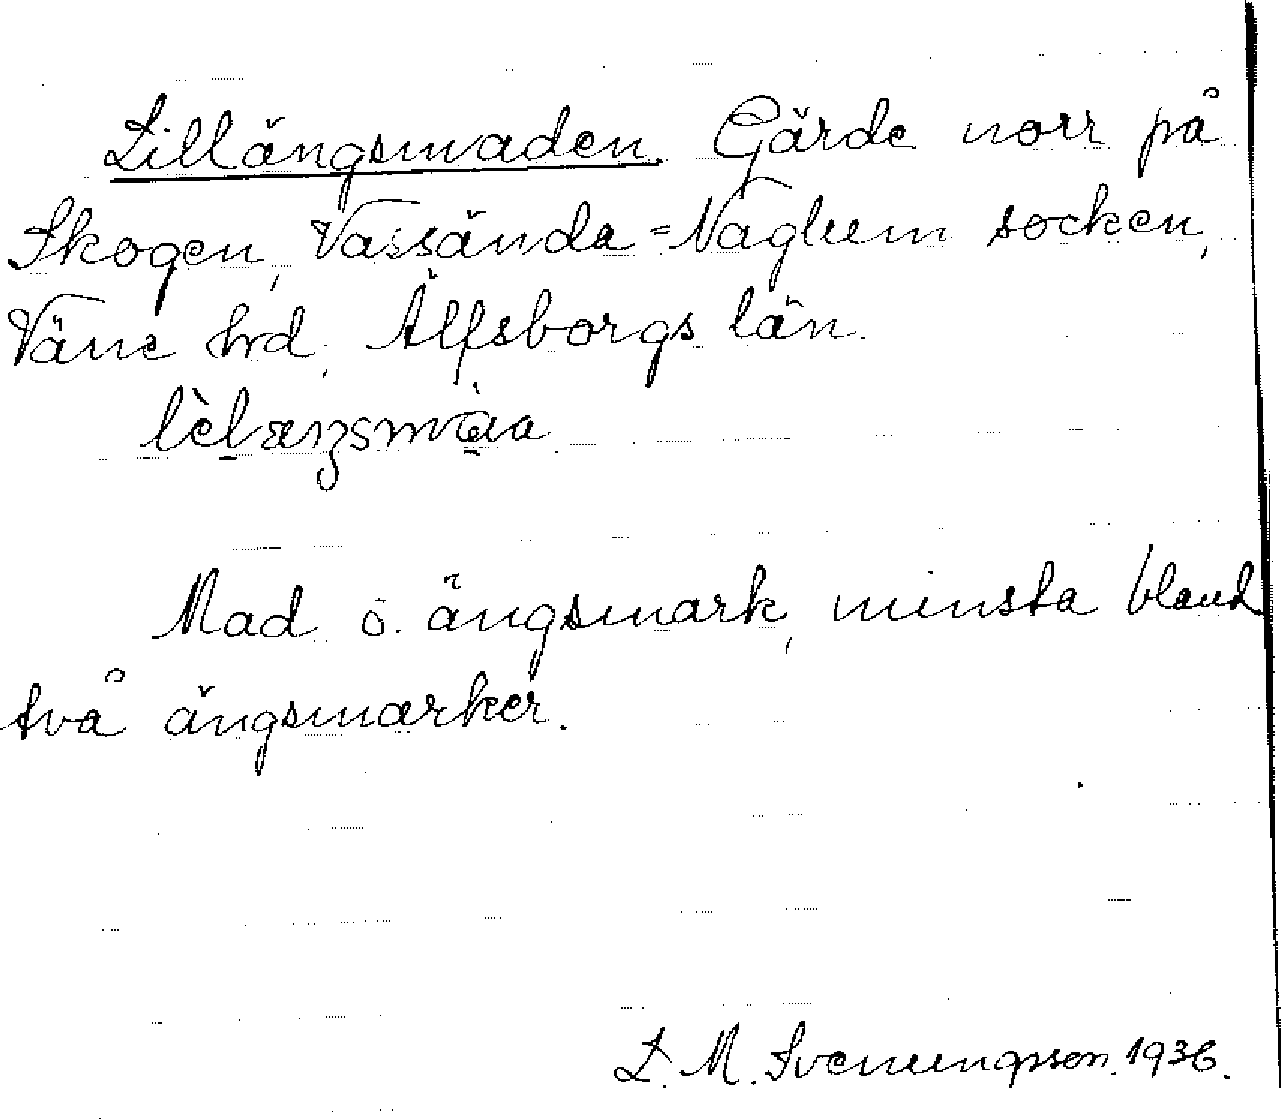 Lillängsmaden. Gärde norr på
Skogen, Vassända=Naglum socken,
Väne hd, Älfsborgs län.
Mad o. ängsmark, minsta bland
två ängsmarker.
L. M. Svenungsson. 1936.